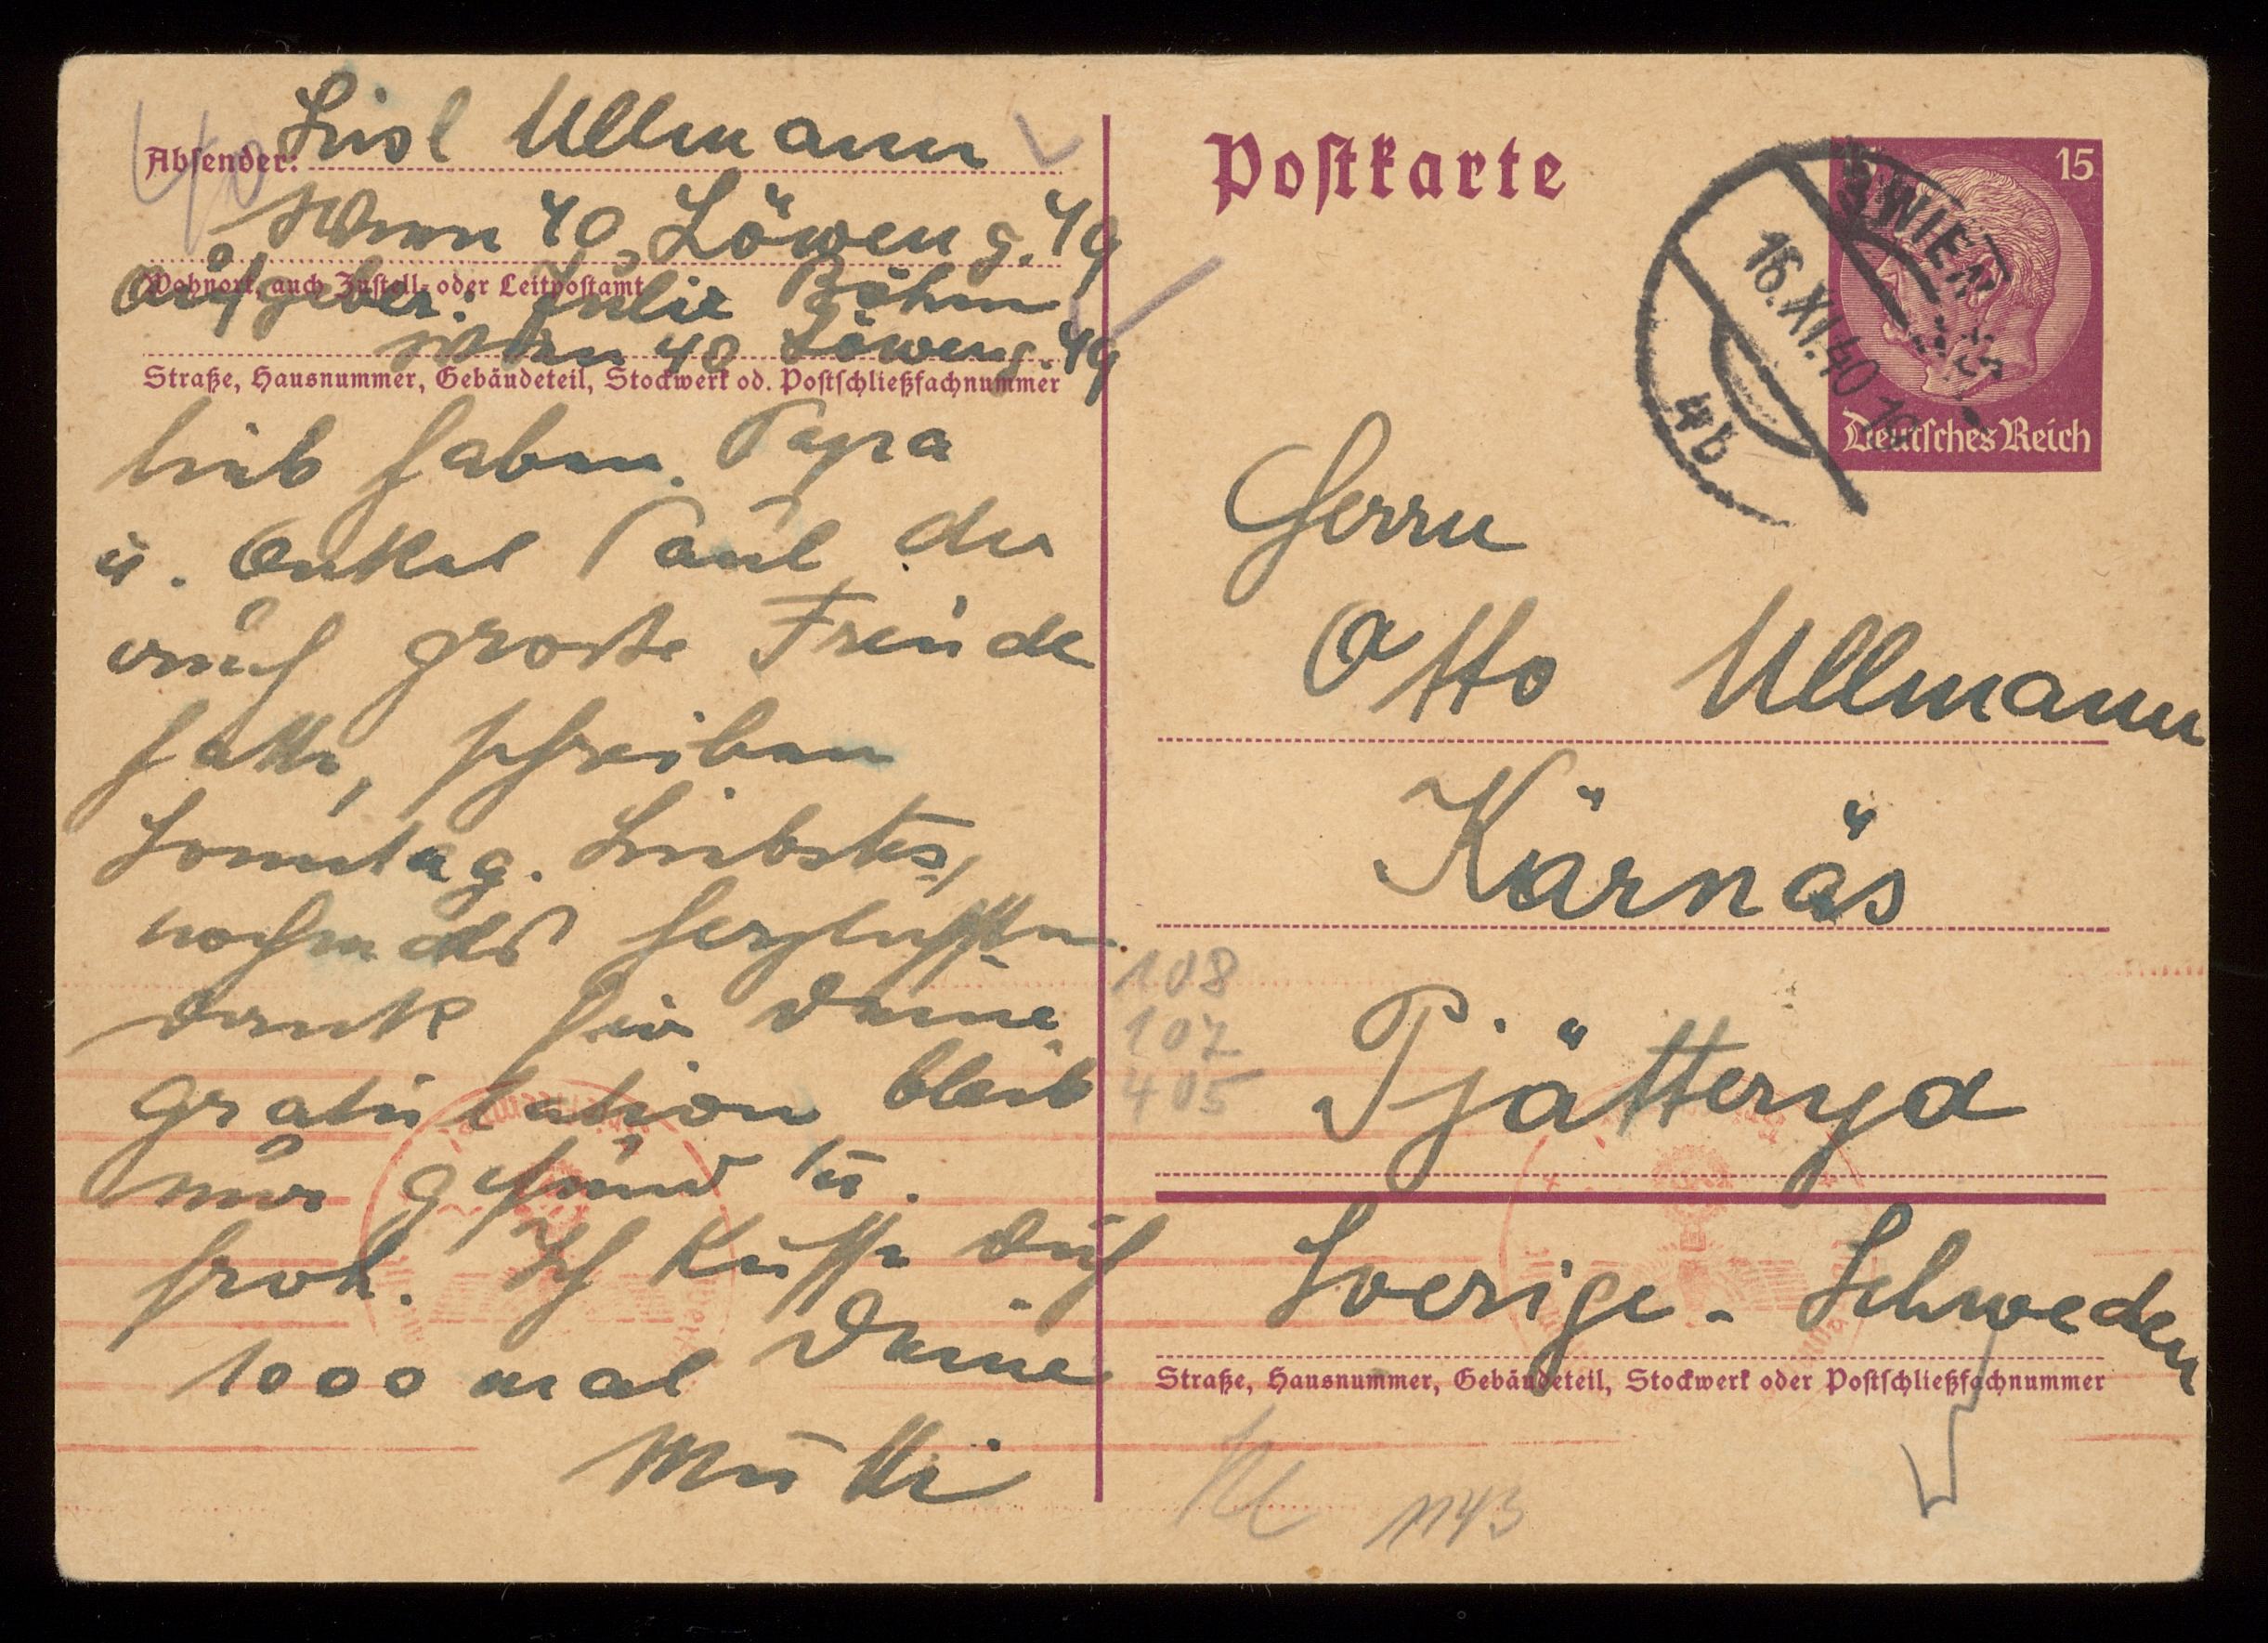 Absender: Liesl Ullmann
Wien 40, Löweng. 49
Wohnort, auch Zustell- oder Leitpostamt
Aufgeber: Julie Böhm
Wien 40 Löweng. 49
Straße, Hausnummer, Gebäudeteil, Stockwerk od. Postschließfachnummer
lieb haben. Papa
u. Onkel Paul, der
auch große Freude
hatte, schreiben
Sonntag. Liebstes,
nochmals herzlichsten
Dank für Deine
Gratulation, bleib
nur gesund u.
froh. Ich küsse Dich
1000 mal Deine
Mutti
Postkarte
15
Deutsches Reich
WIEN
16.XI.40
4b
Herrn
Otto Ullmann
Kärnäs
Pjätteryd
Sverige - Schweden
Straße, Hausnummer, Gebäudeteil, Stockwerk oder Postschließfachnummer
108
107
405
1143